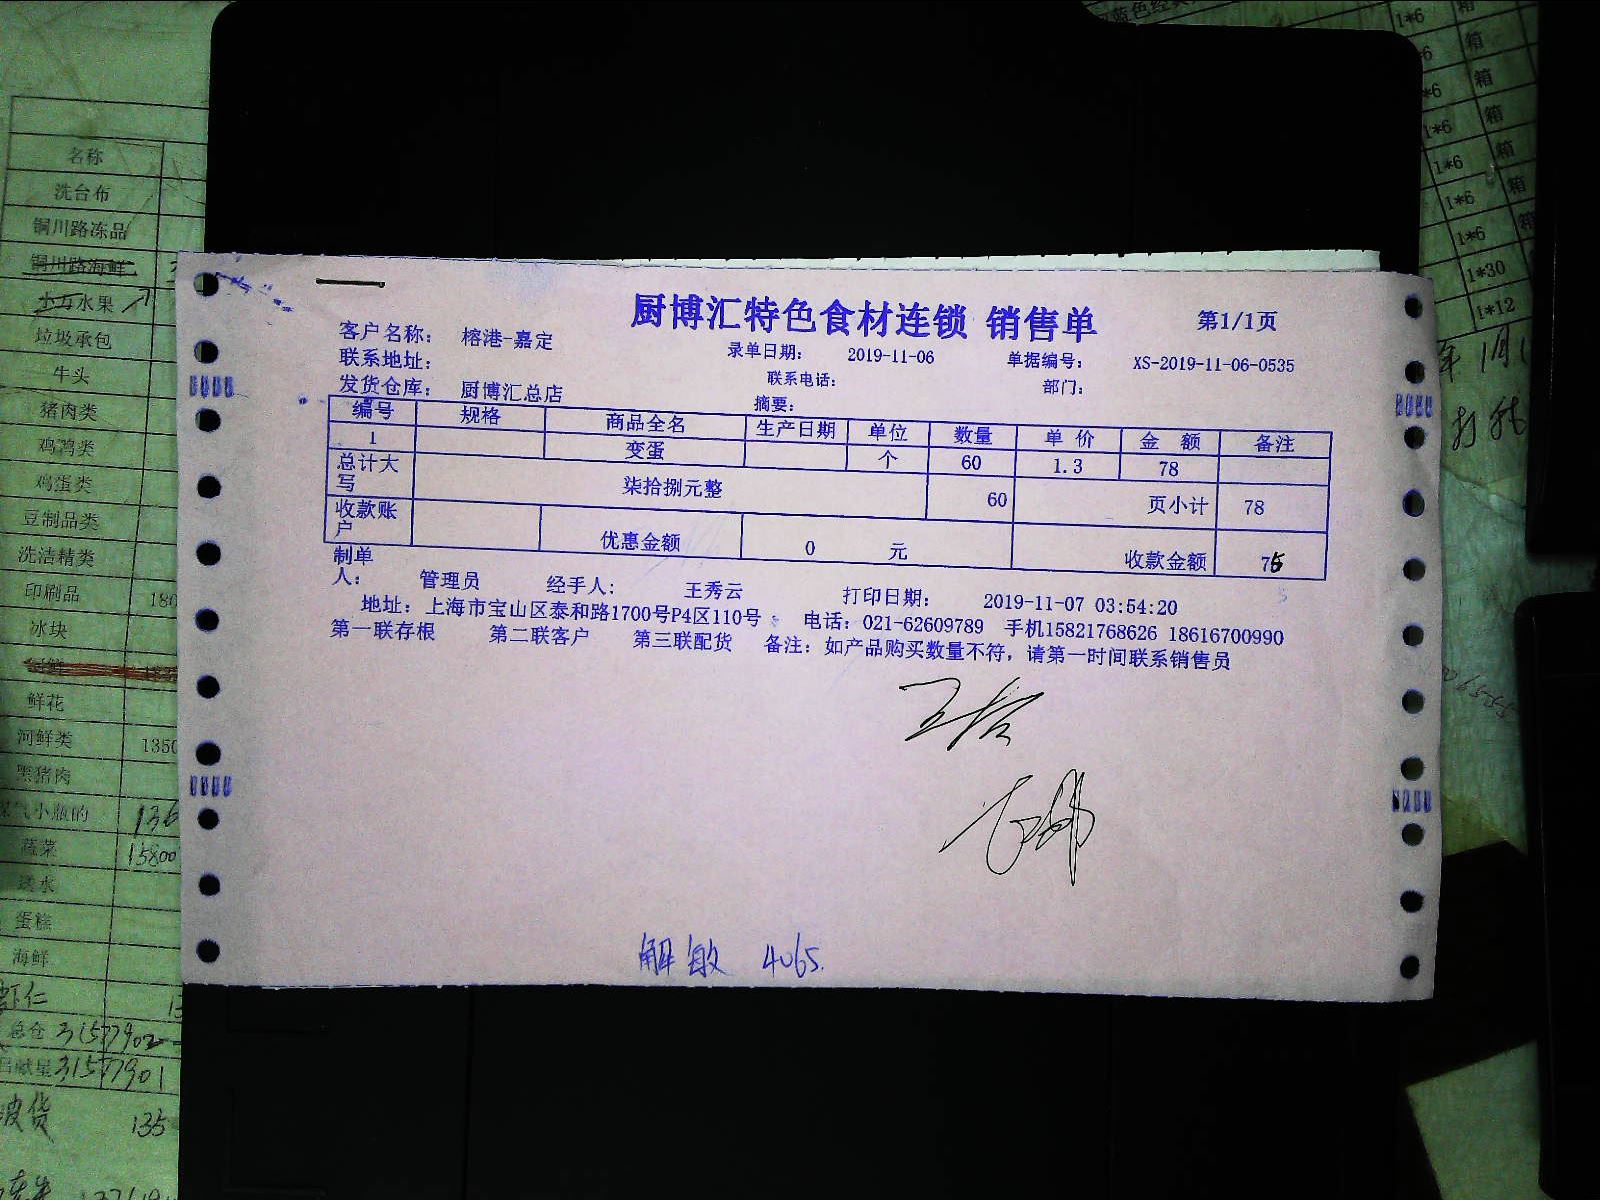 厨博汇特色食材连锁 销售单 第1/1页
客户名称： 榕港-嘉定
录单日期： 2019-11-06 单据编号： XS-2019-11-06-0535
联系地址： 联系电话： 部门：
发货仓库： 厨博汇总店 摘要：
编号 规格 商品全名 生产日期 单位 数量 单 价 金 额 备注
1 变蛋 个 60 1.3 78
总计大写 柒拾捌元整 60 页小计 78
收款账户 优惠金额 0 元 收款金额
制单人： 管理员 经手人： 王秀云 打印日期： 2019-11-07 03:54:20
地址：上海市宝山区泰和路1700号P4区110号 电话：021-62609789 手机15821768626 18616700990
第一联存根 第二联客户 第三联配货 备注：如产品购买数量不符，请第一时间联系销售员
解敏 4065.
名称
洗台布
铜川路冻品
铜川路海鲜
水果
垃圾承包
牛头
猪肉类
鸡鸽类
鸡蛋类
豆制品类
洗洁精类
印刷品 180
冰块
鲜花
河鲜类 1350
黑猪肉
气小瓶的 136
蔬菜 15800
送水
蛋糕
海鲜
虾仁
总仓 31577902
31577901
135
蓝色经典
1*6 箱
1*6 箱
1*6 箱
1*6 箱
1*6 箱
1*6 箱
1*6 箱
1*30
1*12